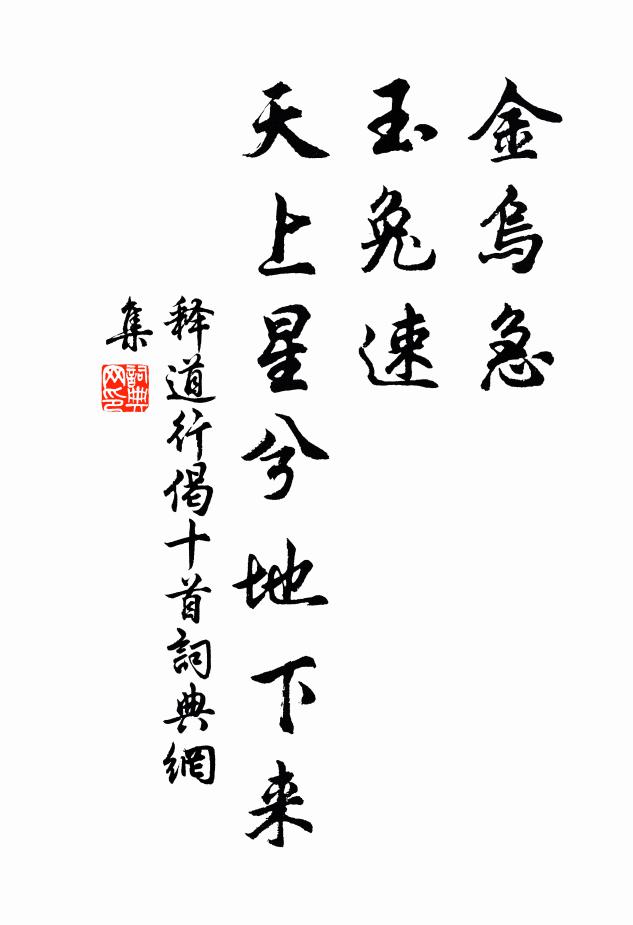 金烏急
玉兔速
天上星兮地下来
释道行偈十首詞典網
集
詞典
网印